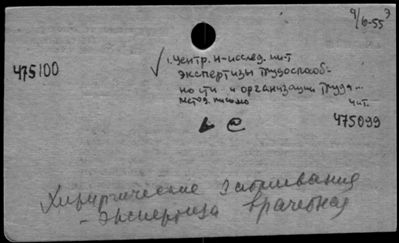 9/6-55 э
475100
✓ Центр. н-исслед. ин-т
экспертизы трудоспособ-
ности и организации труда...
метод. письмо чит.
475099
Хирургические заболевания
- экспертиза врачебная